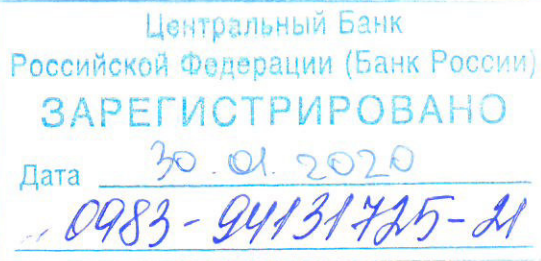 Центральный Банк
Российской Федерации (Банк России)
ЗАРЕГИСТРИРОВАНО
Дата 30.01.2020
0983-94131725-21